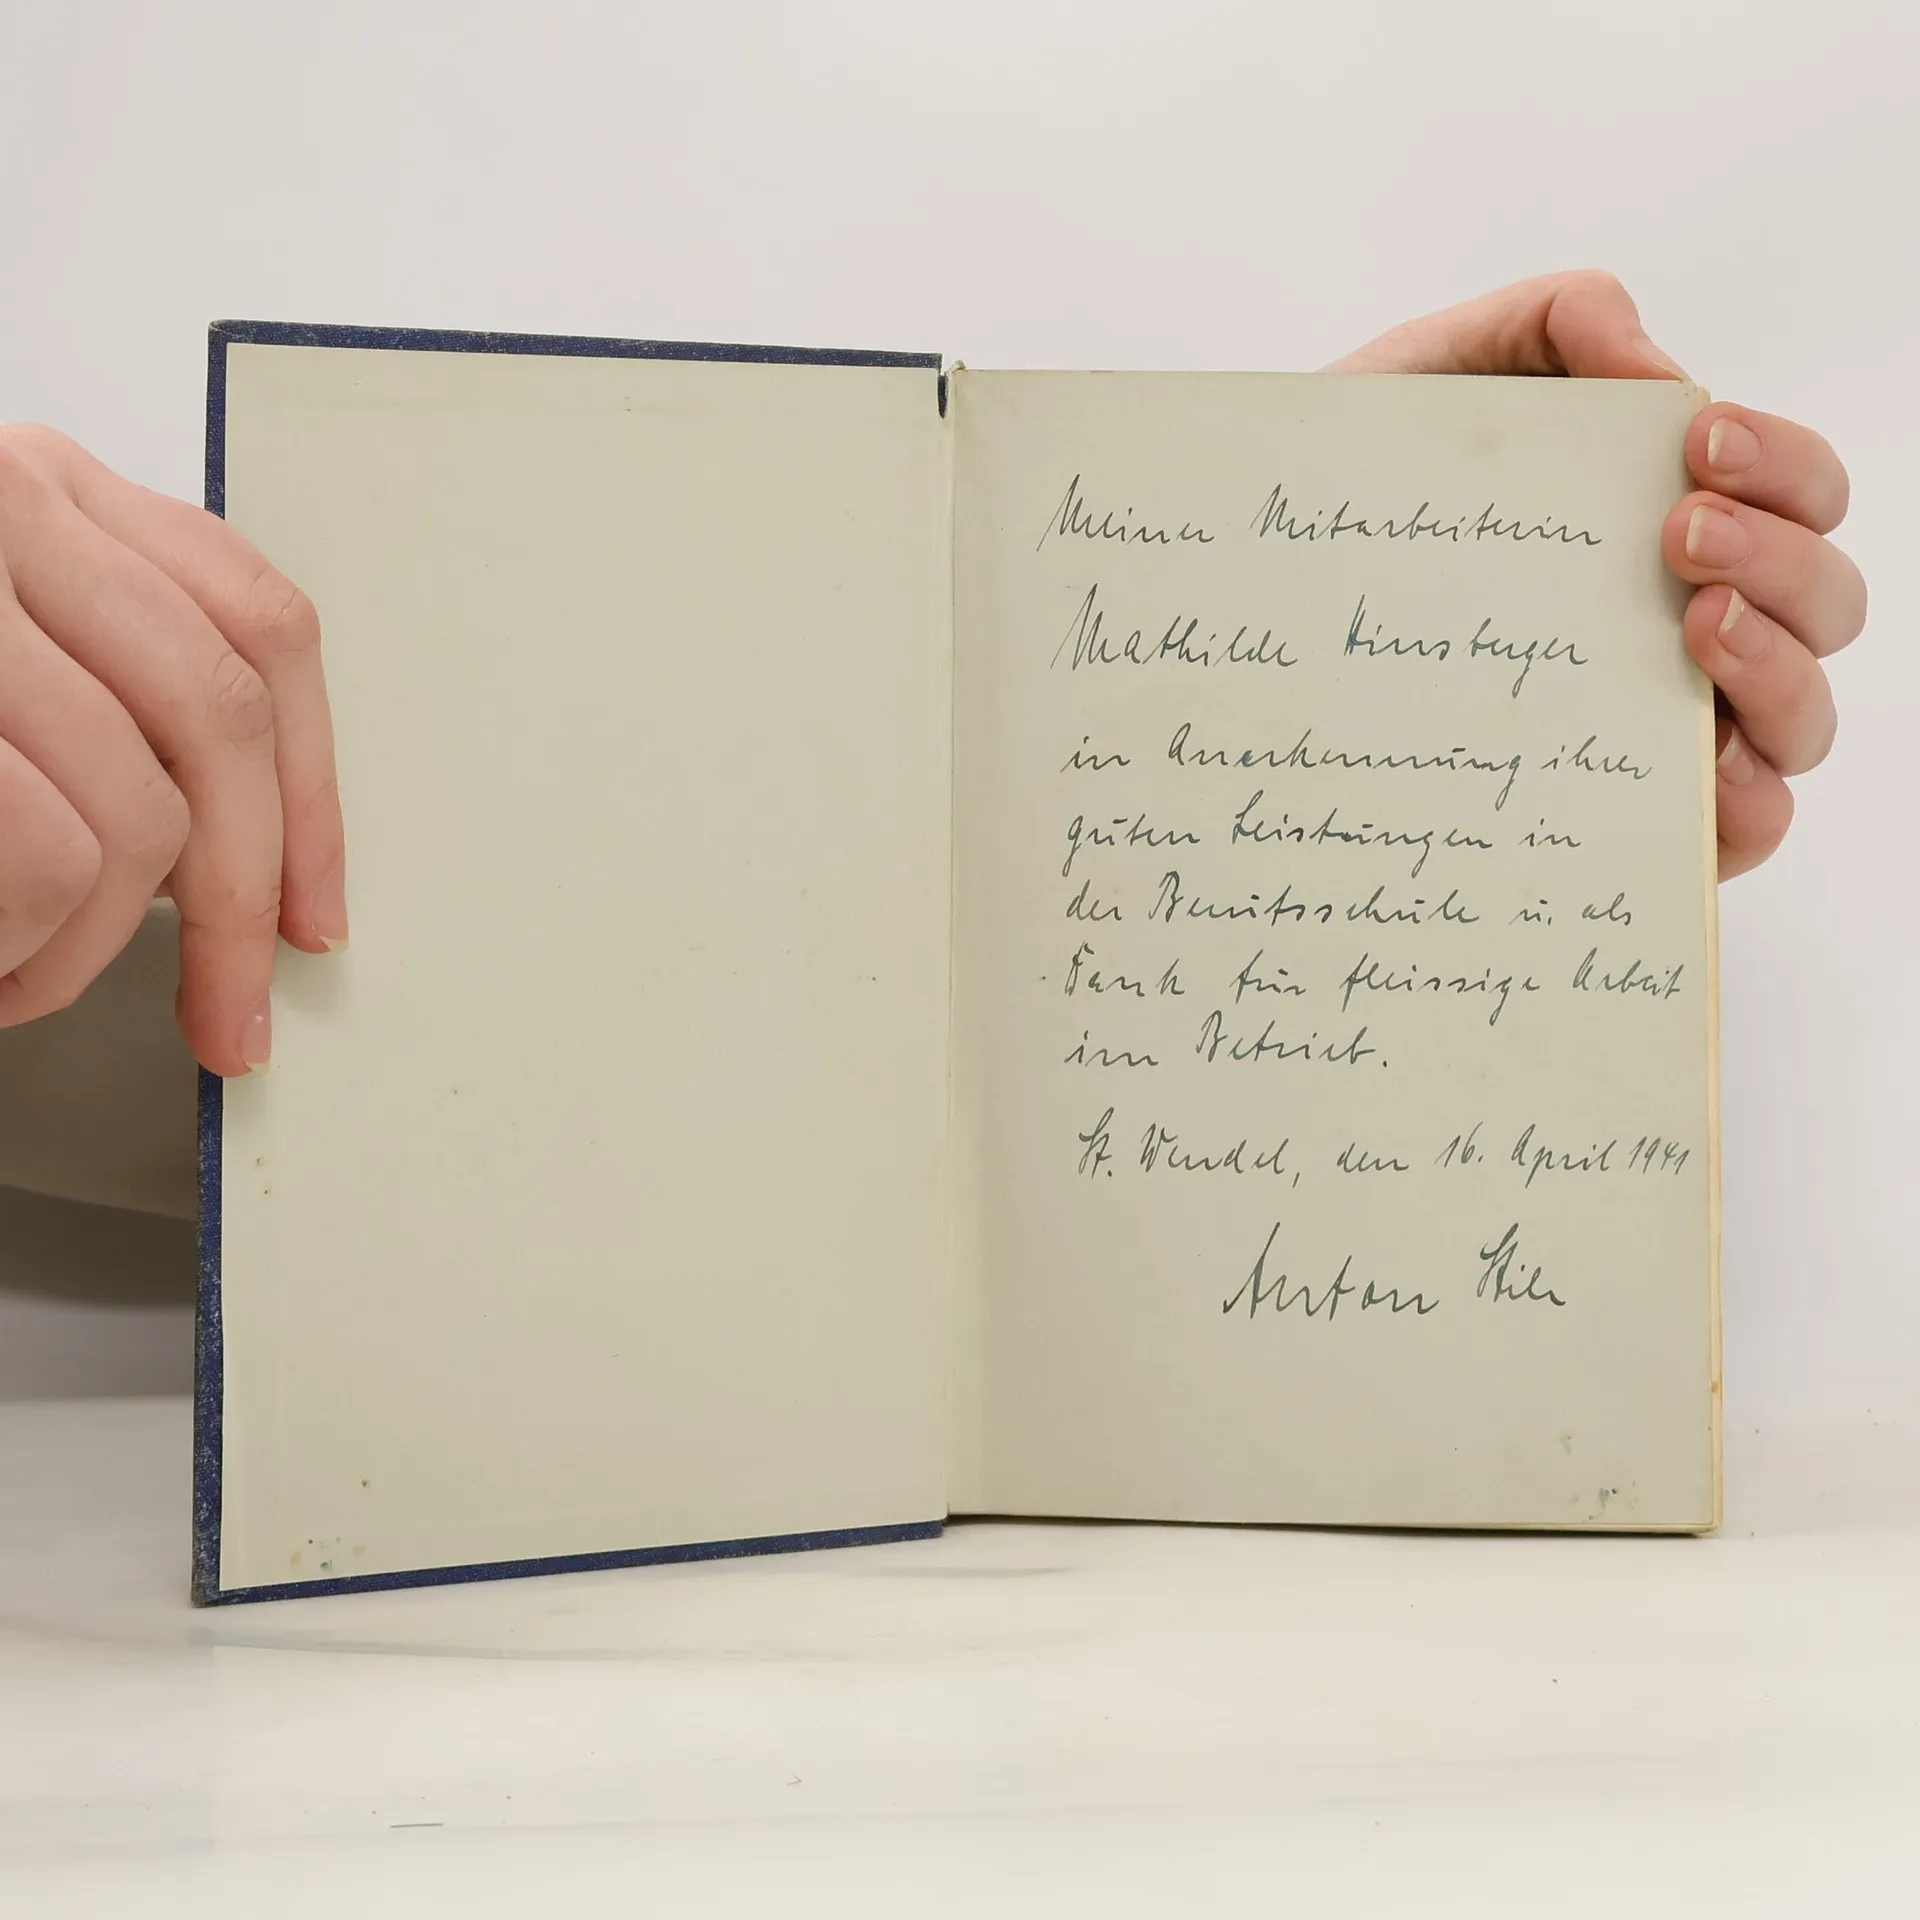 Meiner Mitarbeiterin
Mathilde Hinsberger
in Anerkennung ihrer
guten Leistungen in
der Berufsschule u. als
Dank für fleissige Arbeit
im Betrieb.
St. Wendel, den 16. April 1941
Anton